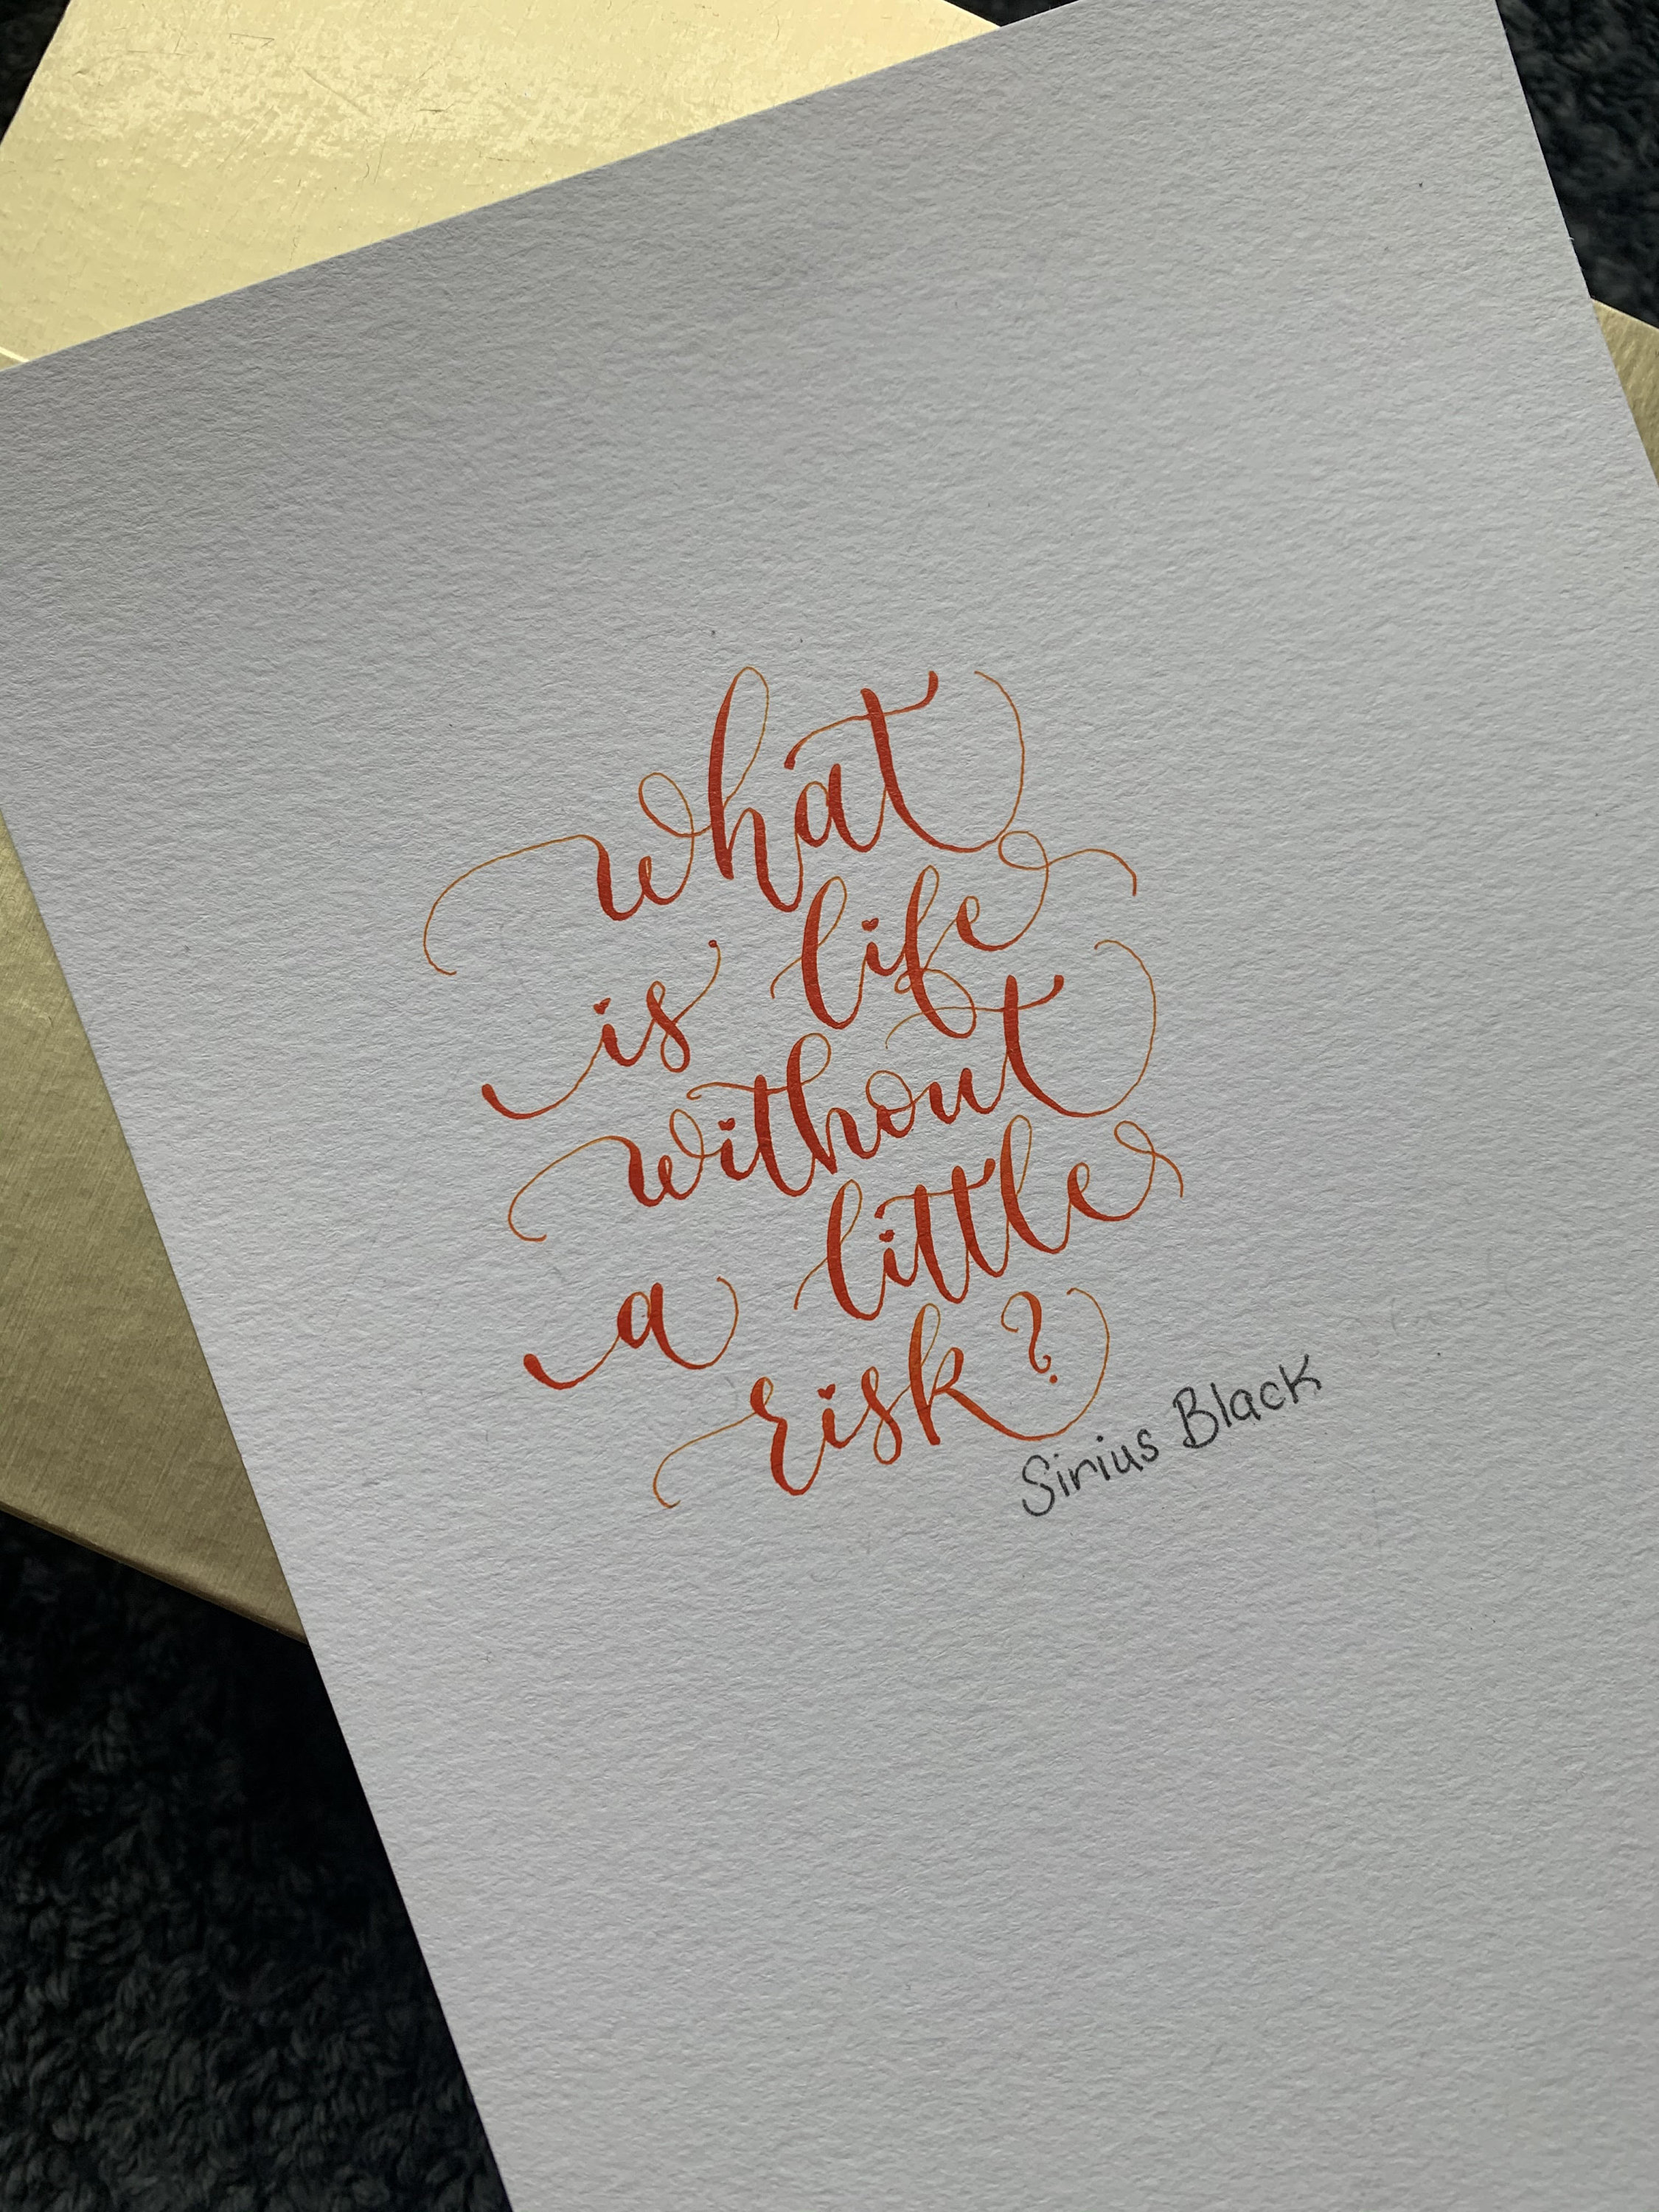 what
is life
without
a little
risk?
Sirius Black